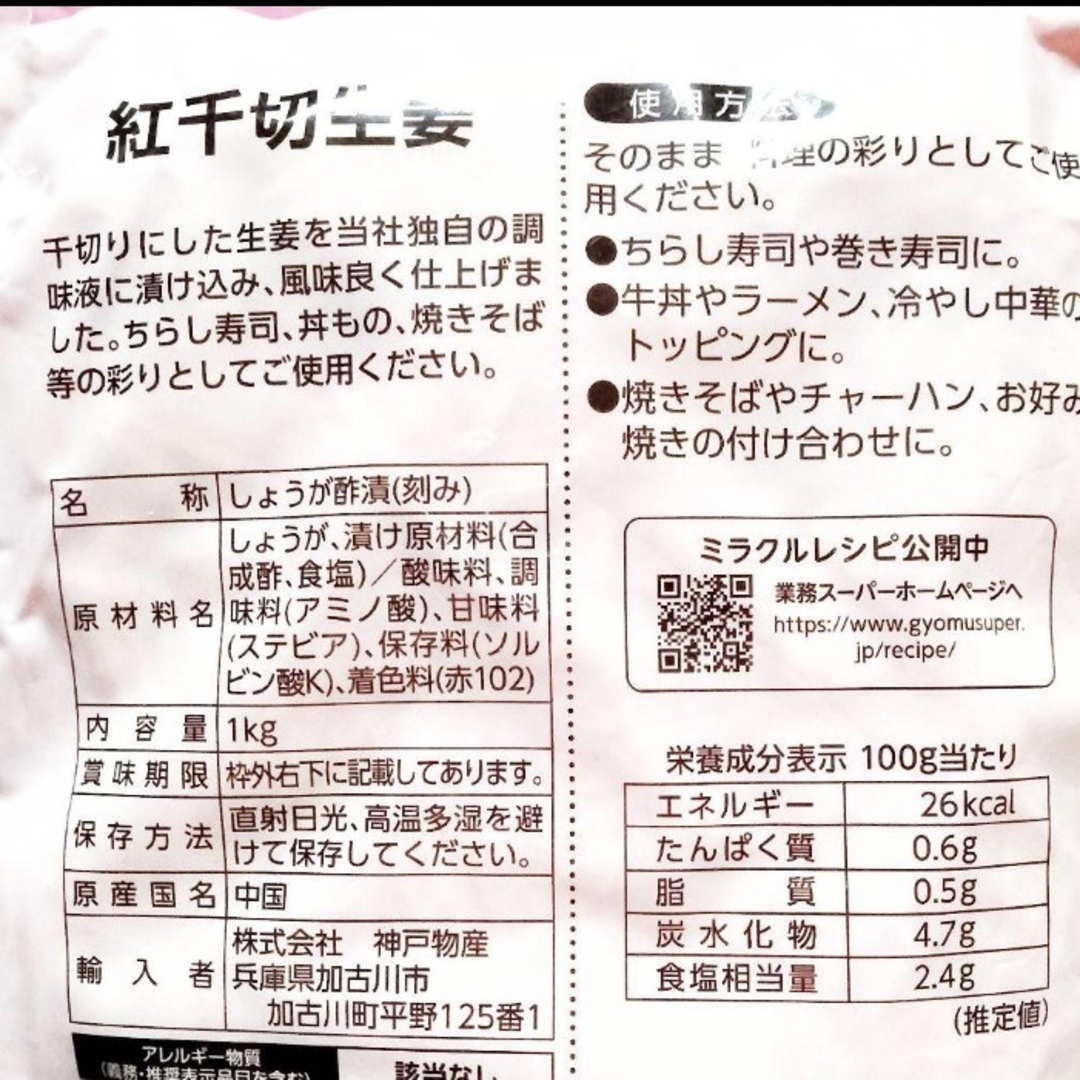 紅千切生姜
千切りにした生姜を当社独自の調
味液に漬け込み、風味良く仕上げま
した。ちらし寿司、丼もの、焼きそば
等の彩りとしてご使用ください。
名称 しょうが酢漬(刻み)
原材料名 しょうが、漬け原材料(合
成酢、食塩)／酸味料、調
味料(アミノ酸)、甘味料
(ステビア)、保存料(ソル
ビン酸K)、着色料(赤102)
内容量 1kg
賞味期限 枠外右下に記載してあります。
保存方法 直射日光、高温多湿を避
けて保存してください。
原産国名 中国
輸入者 株式会社 神戸物産
兵庫県加古川市
加古川町平野125番1
アレルギー物質
(義務・推奨表示品目を含む)
該当なし
使用方法
そのまま 料理の彩りとしてご使
用ください。
●ちらし寿司や巻き寿司に。
●牛丼やラーメン、冷やし中華の
トッピングに。
●焼きそばやチャーハン、お好み
焼きの付け合わせに。
ミラクルレシピ公開中
業務スーパーホームページへ
https://www.gyomusuper.
jp/recipe/
栄養成分表示 100g当たり
エネルギー 26kcal
たんぱく質 0.6g
脂質 0.5g
炭水化物 4.7g
食塩相当量 2.4g
(推定値)